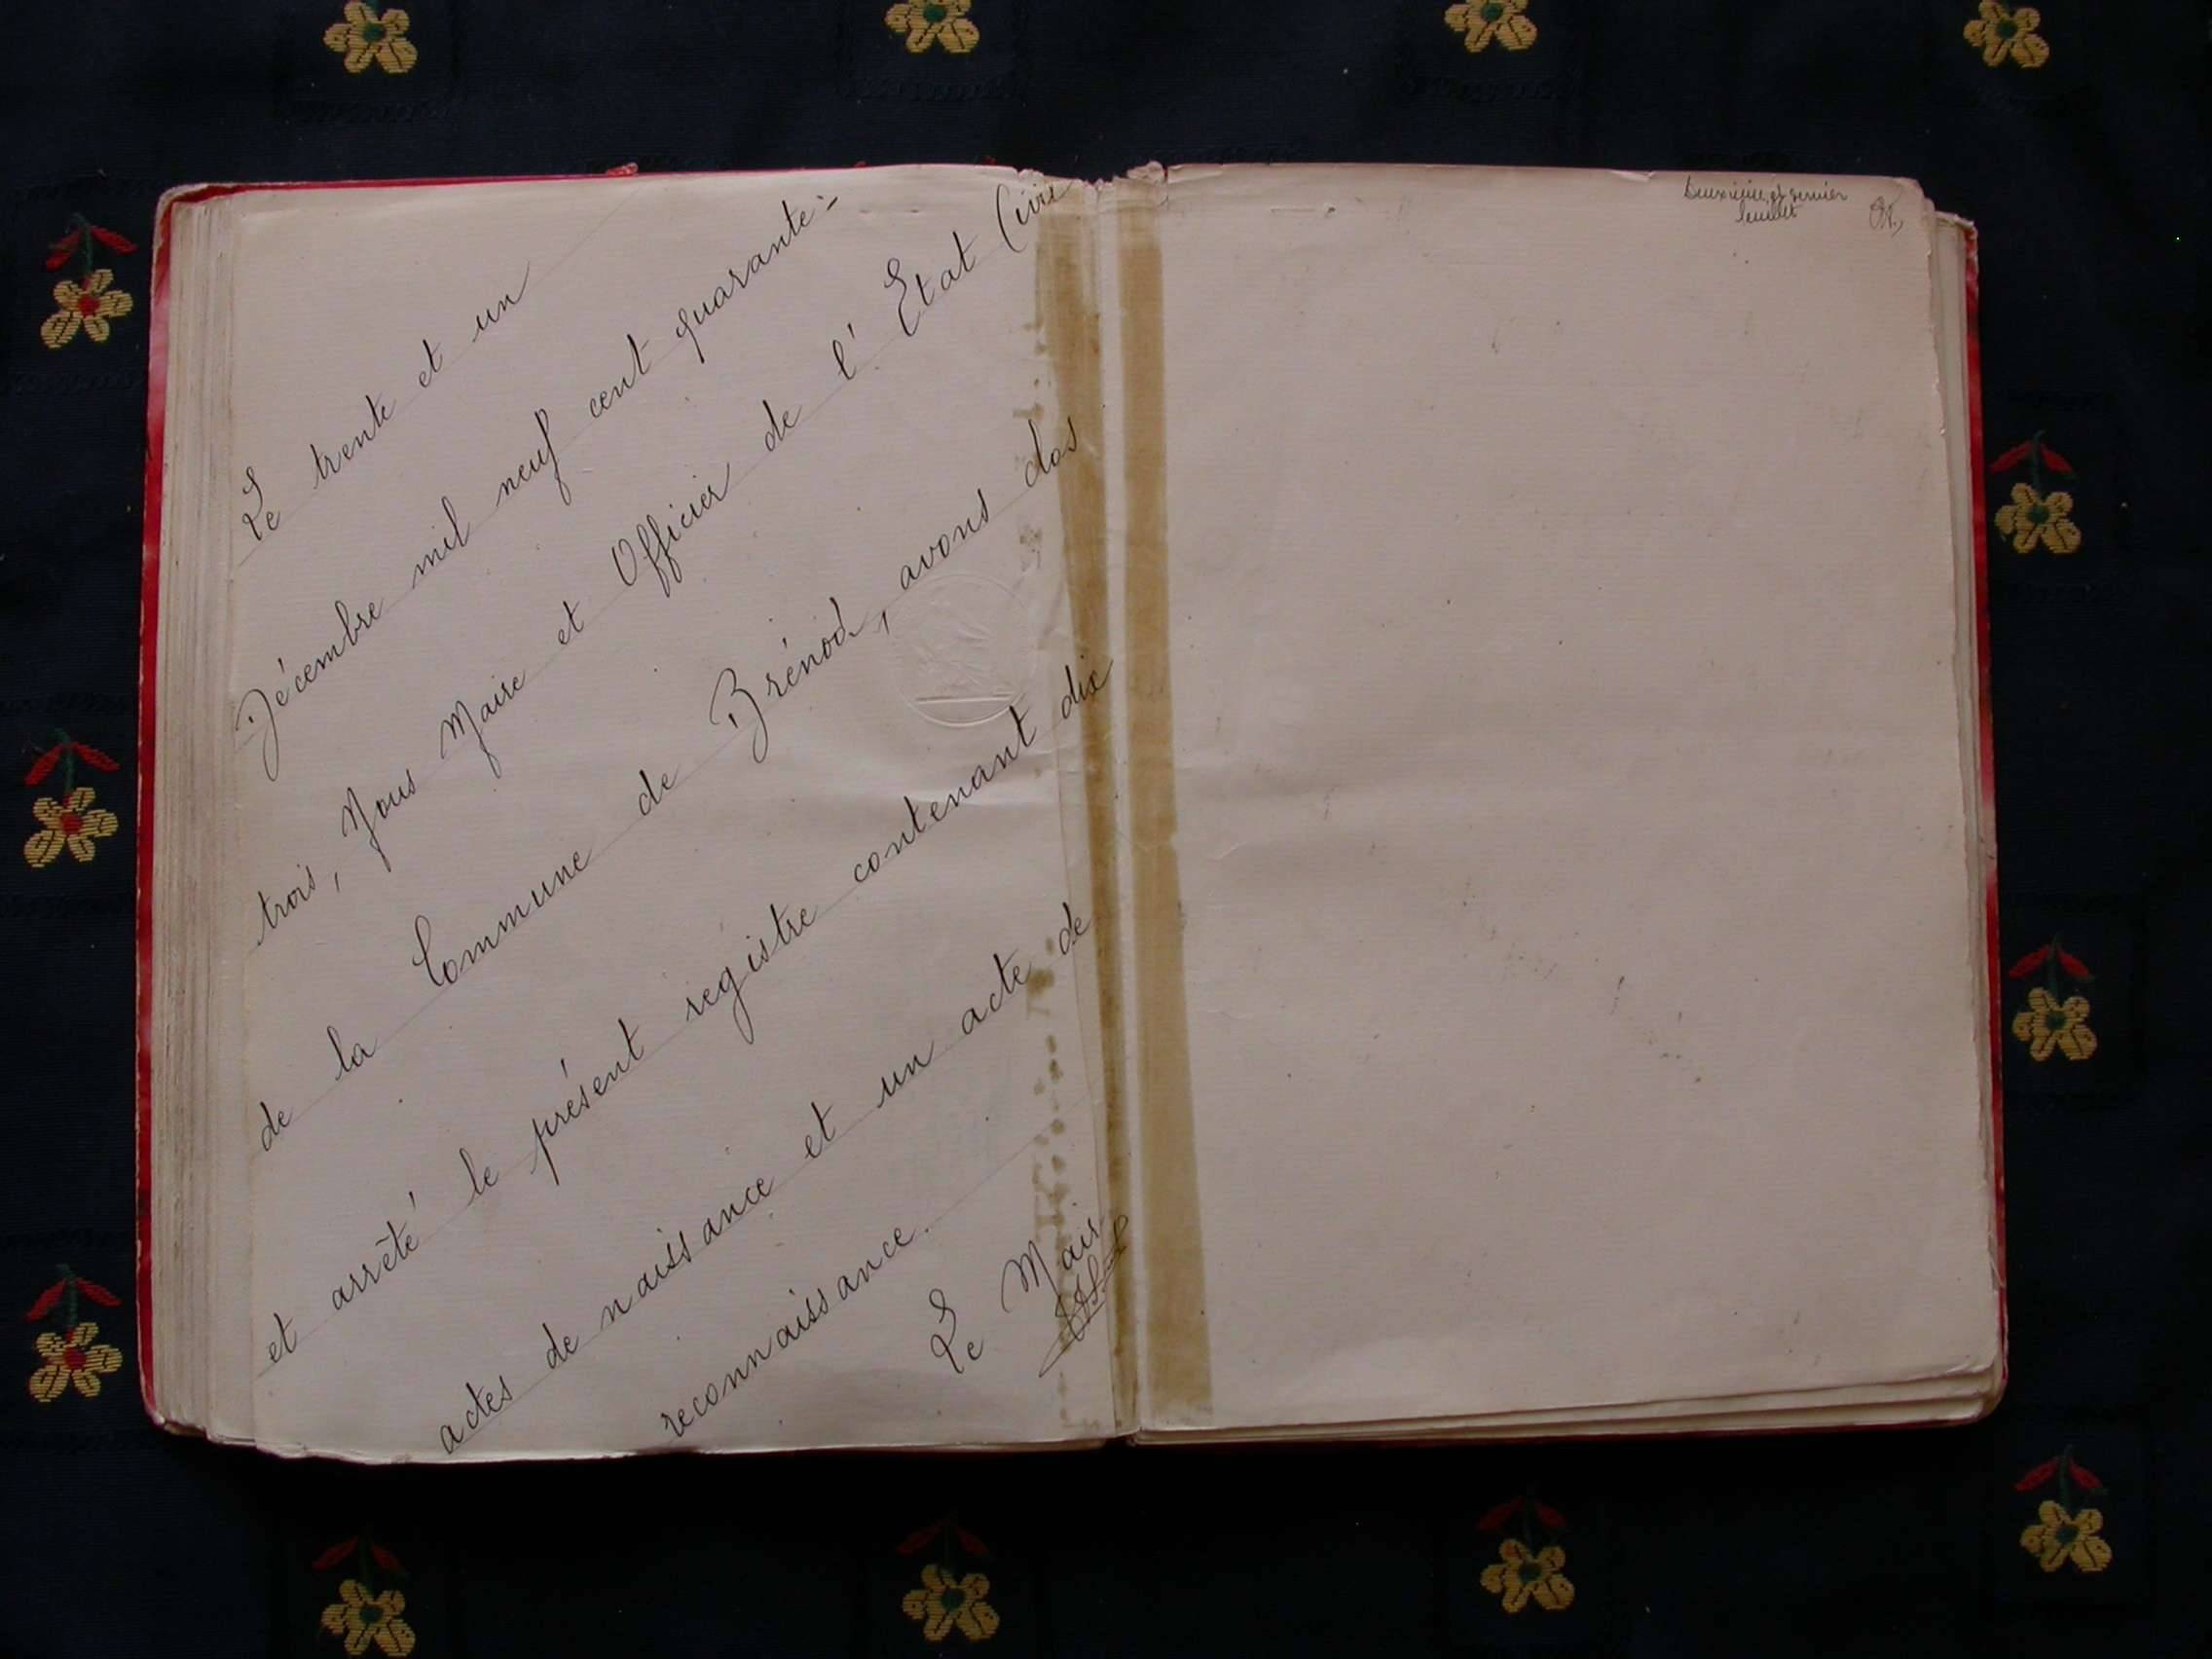 Le trente et un
Décembre mil neuf cent quarante-
trois, Nous Maire et Officier de l'Etat Civil
de la Commune de Brénod, avons clos
et arrêté le présent registre contenant dix
actes de naissance et un acte de
reconnaissance.
Le Maire
Deuxième et dernier
feuillet